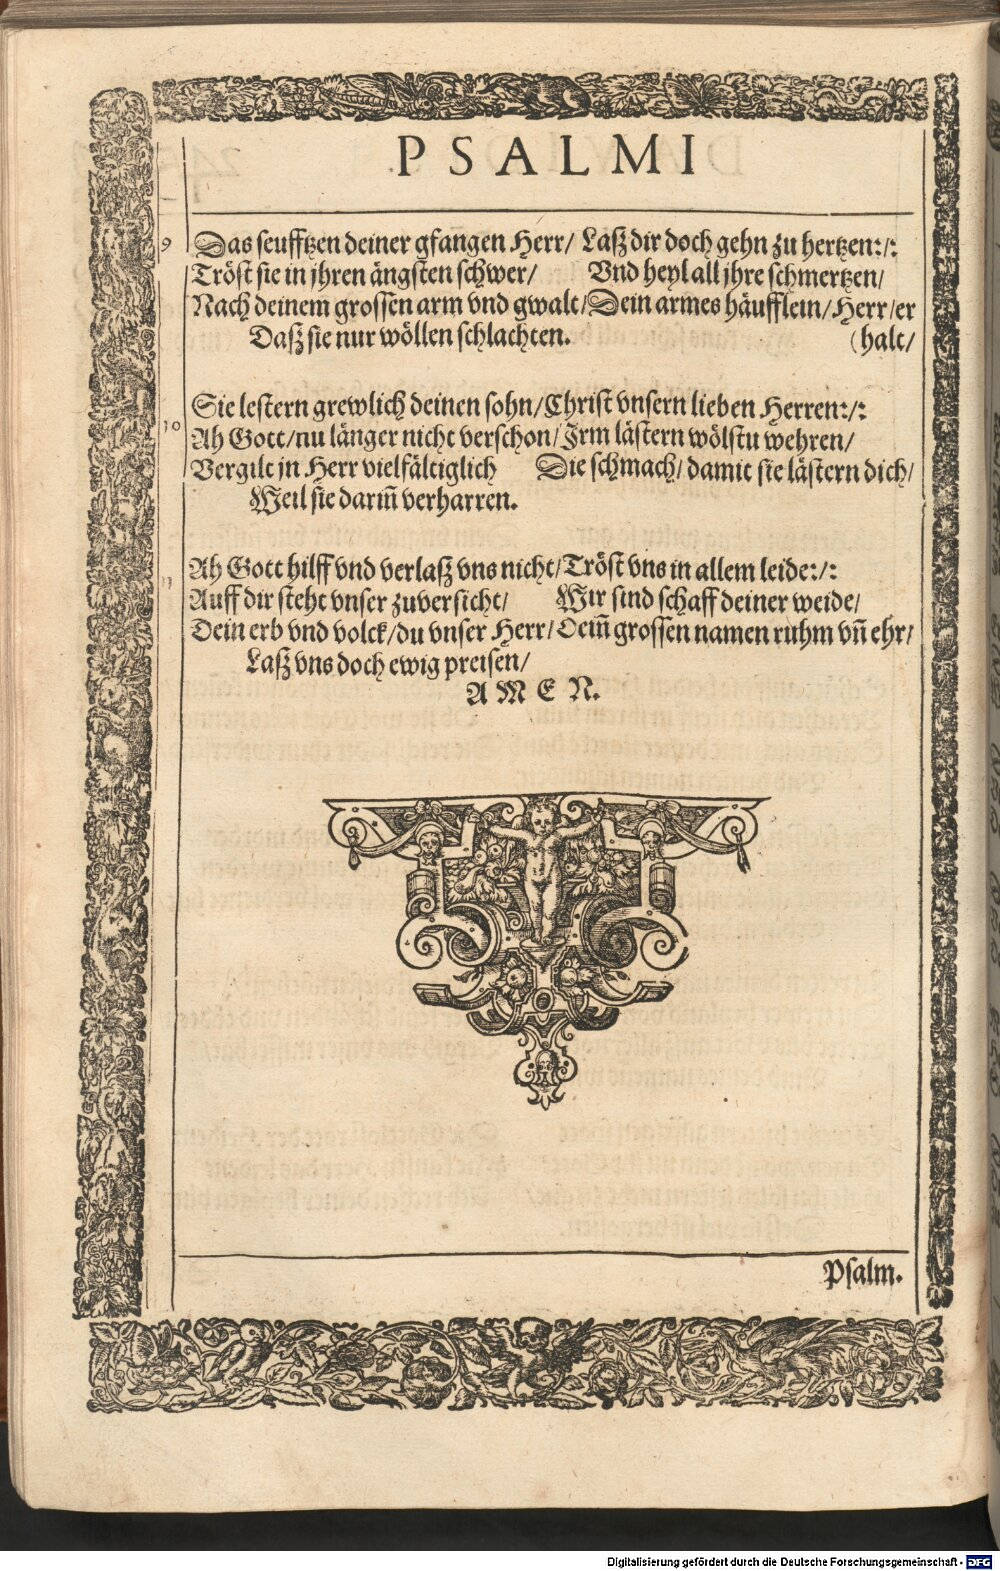 PSALMI
9 Das seufftzen deiner gfangen Herr/ Laß dir doch gehn zu hertzen:/:
Tröst sie in jhren ängsten schwer/ Vnd heyl all jhre schmertzen/
Nach deinem grossen arm vnd gwalt/ Dein armes häufflein/ Herr/ er
Daß sie nur wöllen schlachten. (halt/
Sie lestern grewlich deinen sohn/ Christ vnsern lieben Herren:/:
10 Ah Gott/ nu länger nicht verschon/ Irm lästern wölstu wehren/
Vergilt in Herr vielfältiglich Die schmach/ damit sie lästern dich/
Weil sie darin̄ verharren.
11 Ah Gott hilff vnd verlaß vns nicht/ Tröst vns in allem leide:/:
Auff dir steht vnser zuversicht/ Wir sind schaff deiner weide/
Dein erb vnd volck/ du vnser Herr/ Deim̄ grossen namen ruhm vn̄ ehr/
Laß vns doch ewig preisen/
AMEN.
Psalm.
Digitalisierung gefördert durch die Deutsche Forschungsgemeinschaft - DFG